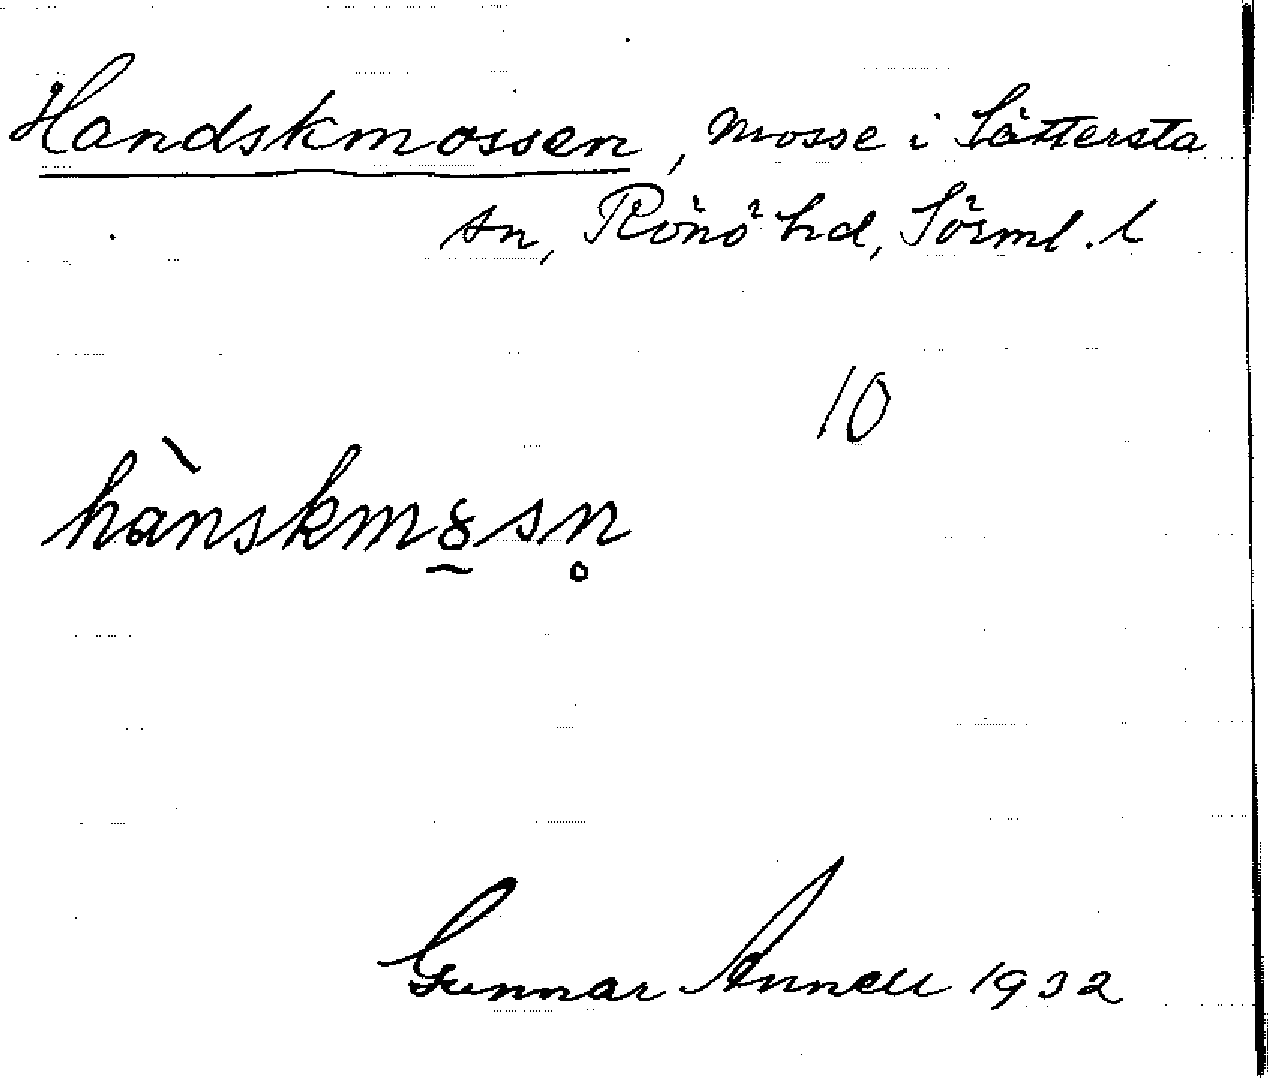 Handskmossen, mosse i Sättersta
sn, Rönö hd, Sörml. l
10
hànskmo̰sn̥
Gunnar Annell 1932